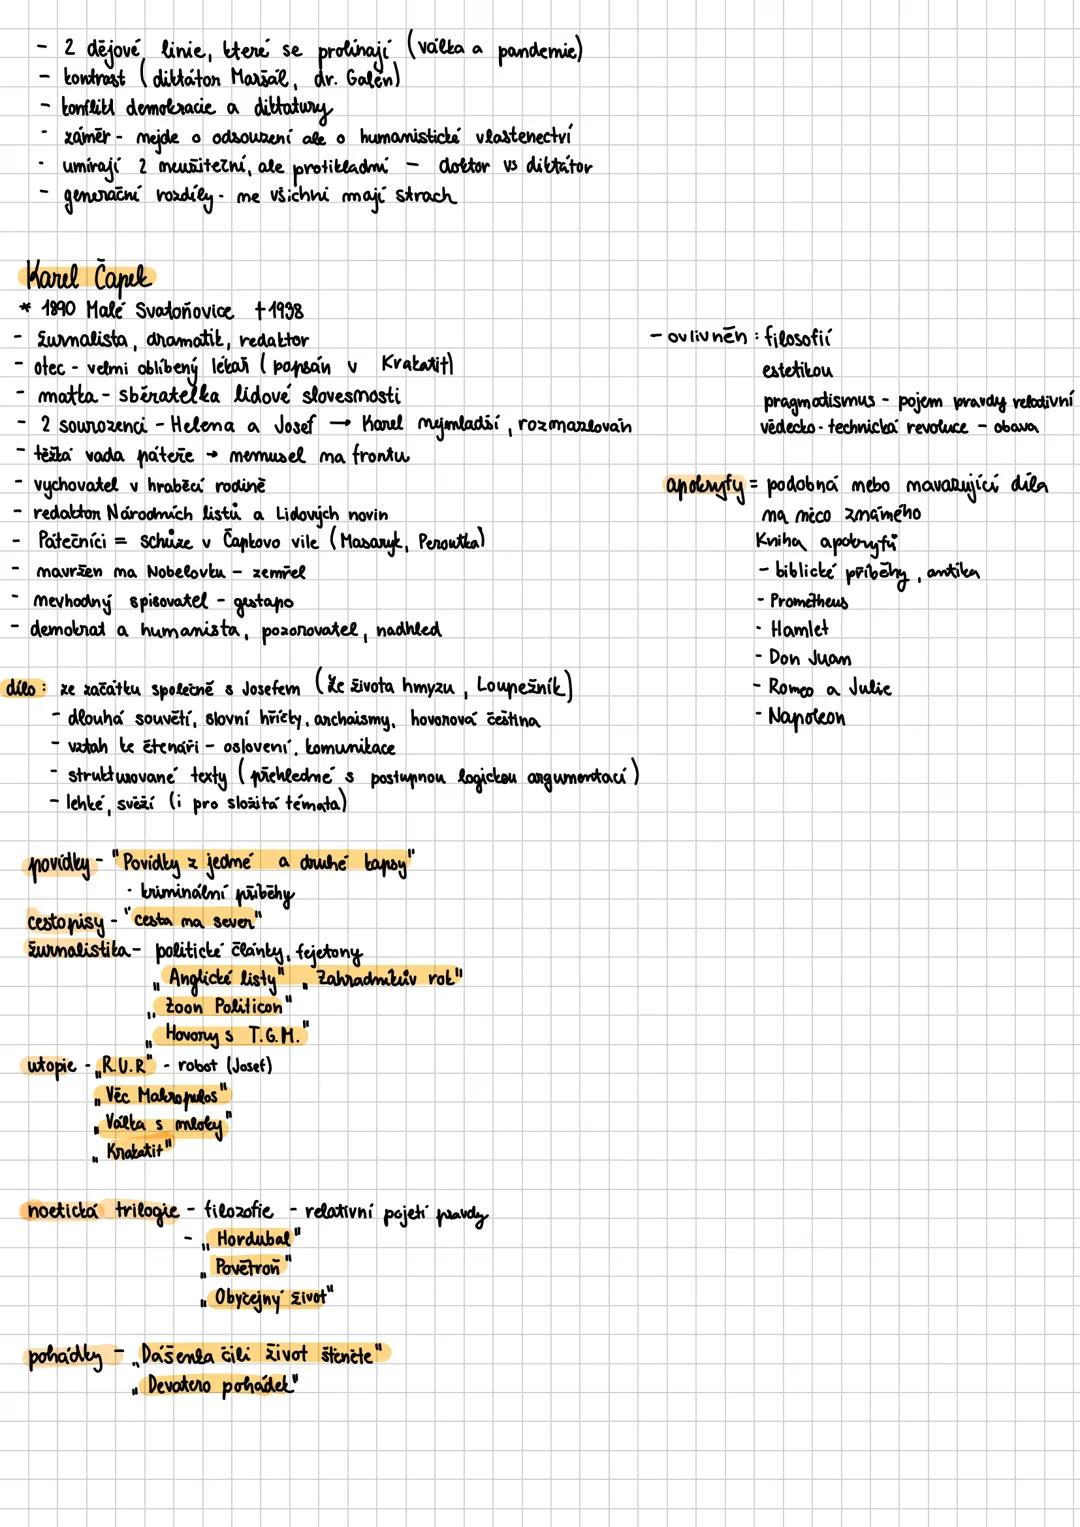 - 2 dějové linie, které se prolínají (válka a pandemie)
- kontrast (diktátor Maršál, dr. Galén)
- konflikt demokracie a diktatury
- záměr - nejde o odsouzení ale o humanistické vlastenectví
- umírají 2 neužiteční, ale protikladní - doktor vs diktátor
- generační rozdíly - ne všichni mají strach
Karel Čapek
* 1890 Malé Svatoňovice †1938
- žurnalista, dramatik, redaktor
- otec - velmi oblíbený lékař (popsán v Krakatit)
- matka - sběratelka lidové slovesnosti
- 2 sourozenci - Helena a Josef → Karel nejmladší, rozmazlován
- těžká vada páteře → nemusel na frontu
- vychovatel v hraběcí rodině
- redaktor Národních listů a Lidových novin
- Pátečníci = schůze v Čapkovo vile (Masaryk, Peroutka)
- navržen na Nobelovku - zemřel
- nevhodný spisovatel - gestapo
- demokrat a humanista, pozorovatel, nadhled
- ovlivněn: filosofií
estetikou
pragmatismus - pojem pravdy relativní
vědecko-technická revoluce - obava
apokryfy = podobná nebo navazující díla
na něco známého
Kniha apokryfů
- biblické příběhy, antika
- Prométheus
- Hamlet
- Don Juan
- Romeo a Julie
- Napoleon
dílo: ze začátku společně s Josefem (Ze života hmyzu, Loupežník)
- dlouhá souvětí, slovní hříčky, archaismy, hovorová čeština
- vztah ke čtenáři - oslovení, komunikace
- strukturované texty (přehledné s postupnou logickou argumentací)
- lehké, svěží (i pro složitá témata)
povídky - "Povídky z jedné a druhé kapsy"
- kriminální příběhy
cestopisy - "cesta na sever"
žurnalistika - politické články, fejetony
„Anglické listy", Zahradníkův rok"
„Zoon Politicon"
„Hovory s T.G.M."
utopie - „R.U.R" - robot (Josef)
„Věc Makropulos"
„Válka s mloky"
„Krakatit"
noetická trilogie - filozofie - relativní pojetí pravdy
- „Hordubal"
„Povětroň"
„Obyčejný život"
pohádky - „Dášenka čili život štěněte"
„Devatero pohádek"